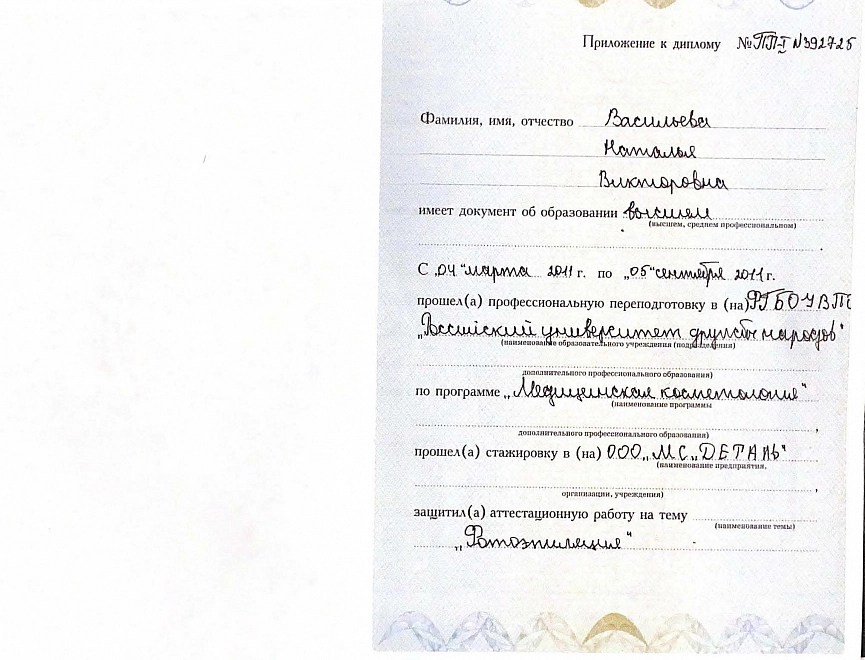 Приложение к диплому № ПП-I N392725
Фамилия, имя, отчество Васильева
Наталья
Викторовна
имеет документ об образовании высшем
(высшем, среднем профессиональном)
С „04" марта 2011 г. по „05" сентября 2011 г.
прошел(а) профессиональную переподготовку в (на) ФГБОУ ВПО
„Российский университет дружбы народов"
(наименование образовательного учреждения (подразделения)
дополнительного профессионального образования)
по программе „Медицинская косметология"
(наименование программы
дополнительного профессионального образования)
прошел(а) стажировку в (на) ООО „МС „ДЕТАЛЬ"
(наименование предприятия,
организации, учреждения)
защитил(а) аттестационную работу на тему
(наименование темы)
„Фотоэпиляция"